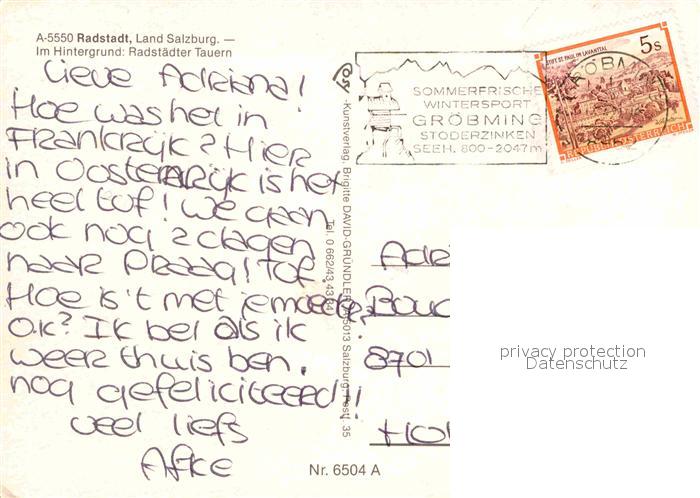 A-5550 Radstadt, Land Salzburg. —
Im Hintergrund: Radstädter Tauern
Lieve Adriana!
Hoe was het in
Frankrijk? Hier
in Oostenrijk is het
heel tof! We gaan
ook nog 2 dagen
naar Praag! Tof!
Hoe is 't met je moeder?
O.K? Ik bel als ik
weer thuis ben.
nog gefeliciteerd!!
veel liefs
Afke
-Kunstverlag, Brigitte DAVID-GRÜNDLER, A-5013 Salzburg, Postf. 35
Tel. 0 662/43 43 34
Nr. 6504 A
SOMMERFRISCHE
WINTERSPORT
GRÖBMING
STODERZINKEN
SEEH. 800-2047m
STIFT ST. PAUL IM LAVANTTAL
5s
REPUBLIK ÖSTERREICH
Adri
Bouc
8701
Hol
privacy protection
Datenschutz